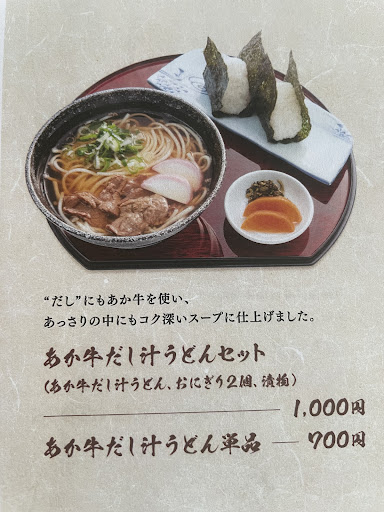 “だし”にもあか牛を使い、
あっさりの中にもコク深いスープに仕上げました。
あか牛だし汁うどんセット
(あか牛だし汁うどん、おにぎり2個、漬物)
1,000円
あか牛だし汁うどん単品 700円